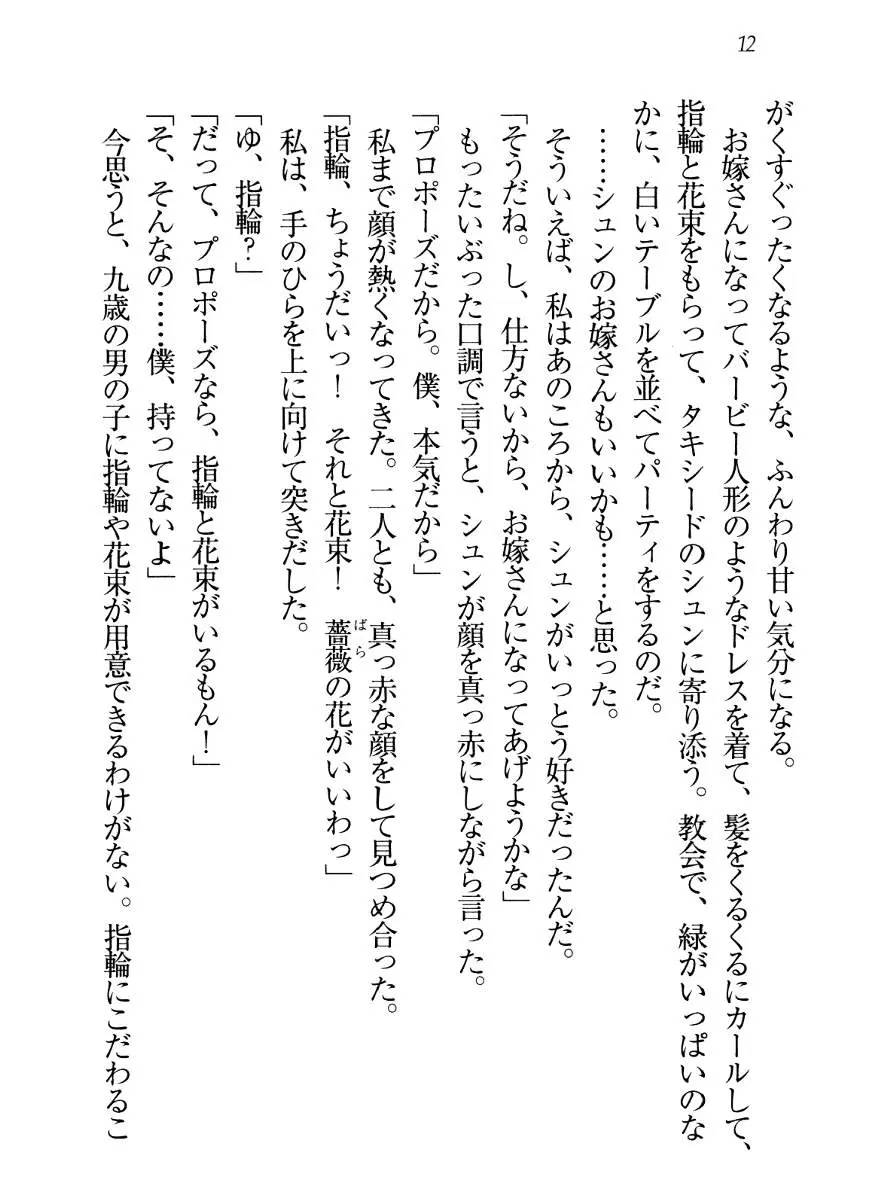 12
がくすぐったくなるような、ふんわり甘い気分になる。
お嫁さんになってバービー人形のようなドレスを着て、髪をくるくるにカールして、
指輪と花束をもらって、タキシードのシュンに寄り添う。教会で、緑がいっぱいのな
かに、白いテーブルを並べてパーティをするのだ。
……シュンのお嫁さんもいいかも……と思った。
そういえば、私はあのころから、シュンがいっとう好きだったんだ。
「そうだね。し、仕方ないから、お嫁さんになってあげようかな」
もったいぶった口調で言うと、シュンが顔を真っ赤にしながら言った。
「プロポーズだから。僕、本気だから」
私まで顔が熱くなってきた。二人とも、真っ赤な顔をして見つめ合った。
「指輪、ちょうだいっ！　それと花束！　薔薇の花がいいわっ」
ばら
私は、手のひらを上に向けて突きだした。
「ゆ、指輪？」
「だって、プロポーズなら、指輪と花束がいるもん！」
「そ、そんなの……僕、持ってないよ」
今思うと、九歳の男の子に指輪や花束が用意できるわけがない。指輪にこだわるこ